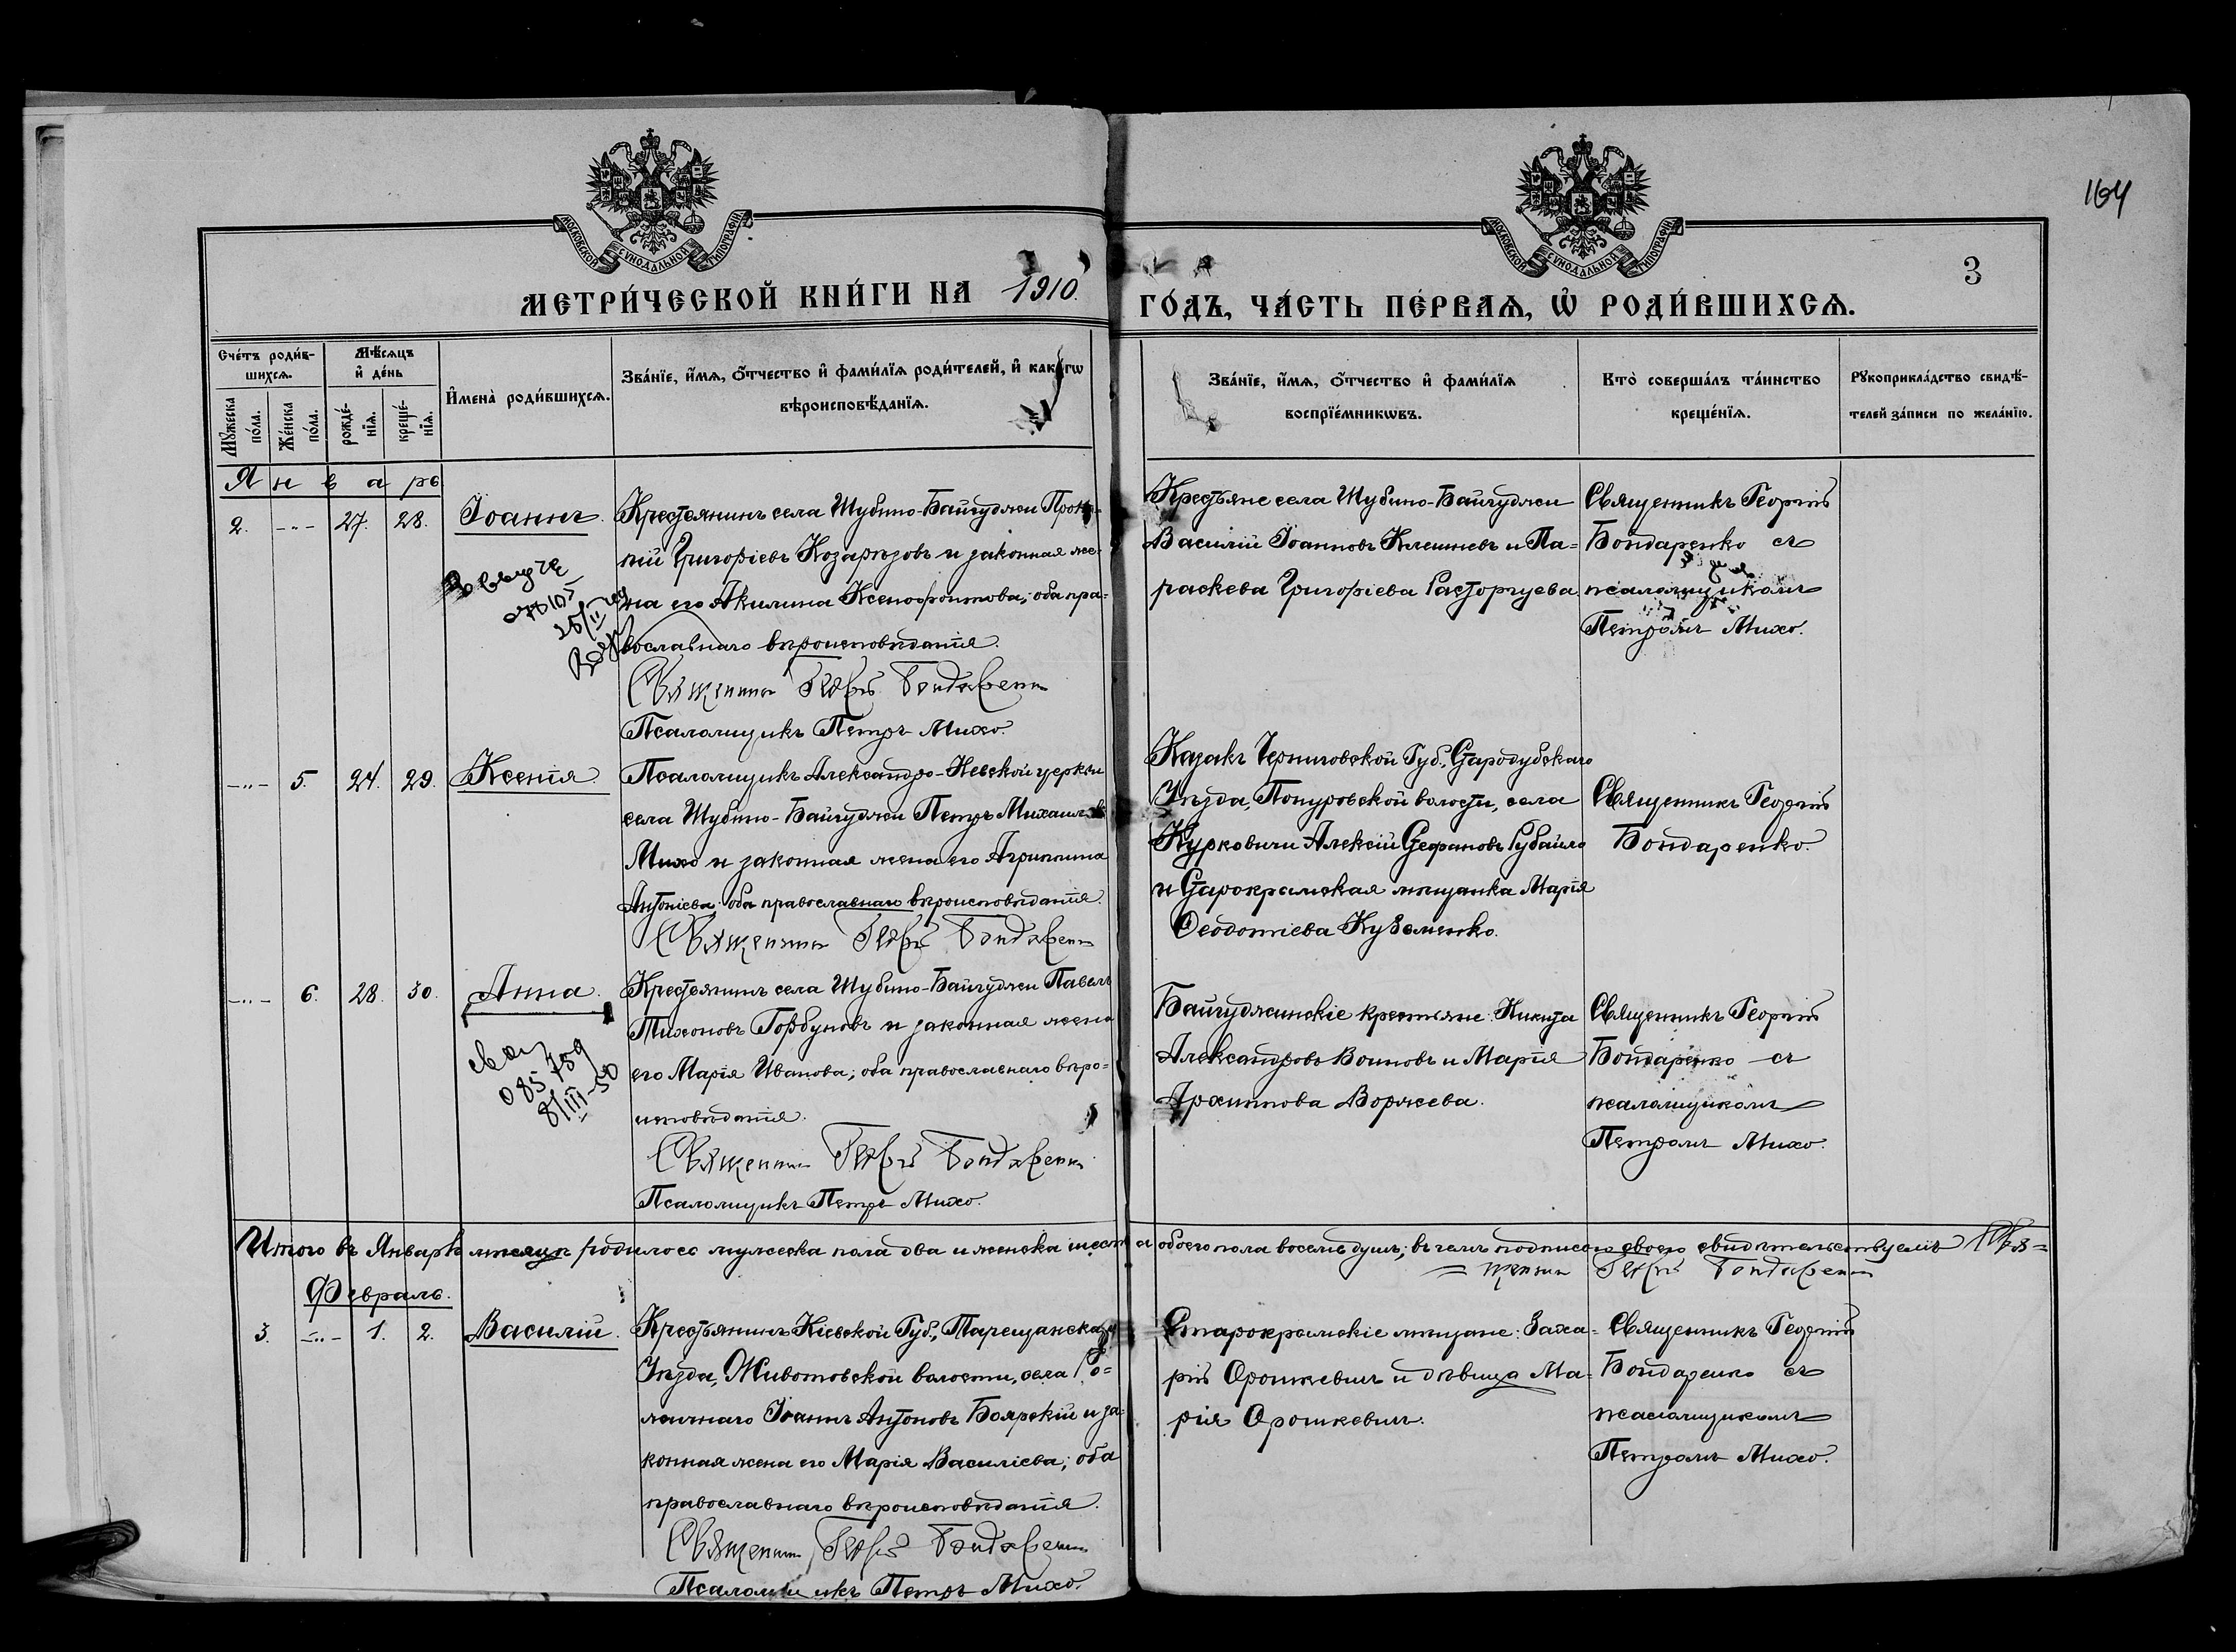 164
3
МОСКОВСКОЙ СѴНОДАЛЬНОЙ ТИПОГРАФІИ
МОСКОВСКОЙ СѴНОДАЛЬНОЙ ТИПОГРАФІИ
МЕТРИ́ЧЕСКОЙ КНИ́ГИ НА 1910. ГО́ДЪ, ЧА́СТЬ ПЕ́РВАЯ, Ѡ҆ РОДИ́ВШИХСЯ.
Сче́тъ роди́в-
шихся.
Мѣ́сяцъ
и҆ де́нь
Мꙋ́жеска
по́ла.
Же́нска
по́ла.
рожде́-
нїя.
креще́-
нїя.
И҆мена̀ роди́вшихся.
Зва́нїе, и҆́мя, ѻ҆́тчество и҆ фами́лїя роди́телей, и҆ како́гѡ
вѣроисповѣ́данїя.
Зва́нїе, и҆́мя, ѻ҆́тчество и҆ фами́лїя
воспрїе́мникѡвъ.
Кто̀ соверша́лъ та́инство
креще́нїя.
Рꙋкоприкла́дство свидѣ́-
телей за́писи по жела́нїю.
Январь
2. -"- 27. 28. Іоаннъ.
Крестьянинъ села Шубино-Байгуджи
пій Григорьевъ Козарѣзовъ и законная же-
на его Акилина Ксенофонтова; оба пра-
вославнаго вѣроисповѣданія.
Священникъ Георгій Бондаренко
Псаломщикъ Петръ Михо.
Крестьяне села Шубино-Байгуджи
Василій Іоанновъ Клешневъ и Па-
раскева Григорьева Расторгуева
Священникъ Георгій
Бондаренко съ
псаломщикомъ
Петромъ Михо.
25/II
-"- 5. 24. 29. Ксенія.
Псаломщикъ Александро-Невской церкви
села Шубино-Байгуджи Петръ Михаиловъ
Михо и законная жена его Агриппина
Антоніева; оба православнаго вѣроисповѣданія.
Священникъ Георгій Бондаренко
Казакъ Черниговской Губ., Стародубскаго
Уѣзда, Понуровской волости, села
Курковичи Алексій Стефановъ Губайло
и Старокрымская мѣщанка Марія
Ѳеодотіева Кузьменко.
Священникъ Георгій
Бондаренко.
-"- 6. 28. 30. Анна.
085759
8/III-50
Крестьянинъ села Шубино-Байгуджи Павелъ
Тихоновъ Горбуновъ и законная жена
его Марія Иванова; оба православнаго вѣро-
исповѣданія.
Священникъ Георгій Бондаренко
Псаломщикъ Петръ Михо.
Байгуджинскіе крестьяне: Никита
Александровъ Воиновъ и Марія
Архиппова Воряжева.
Священникъ Георгій
Бондаренко съ
псаломщикомъ
Петромъ Михо.
Итого въ Январѣ мѣсяцѣ родилось мужеска пола два и женска шесть а обоего пола восемь душъ; въ чемъ подписью своею свидѣтельствуемъ Свя=
=щенникъ Георгій Бондаренко
Февраль.
3. -"- 1. 2. Василій.
Крестьянинъ Кіевской Губ., Таращанскаго
Уѣзда, Животовской волости, села
Іоаннъ Антоновъ Боярскій и за-
конная жена его Марія Василіева; оба
православнаго вѣроисповѣданія.
Священникъ Георгій Бондаренко
Псаломщикъ Петръ Михо.
Старокрымскіе мѣщане: Заха-
рій Орошкевичъ и дѣвица Ма-
рія Орошкевичъ.
Священникъ Георгій
Бондаренко съ
псаломщикомъ
Петромъ Михо.